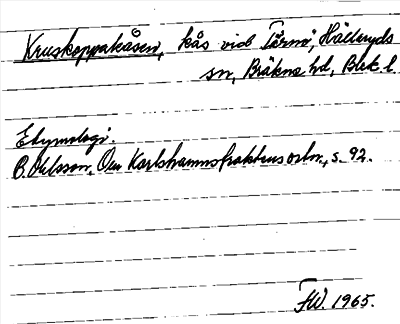 Kruskoppakåsen, kås vid Tärnö, Hällaryds
sn, Bräkne hd, Blek. l
Etymologi.
B. Ohlsson, Om Karlshamnstraktens ortn., s. 92.
FW. 1965.